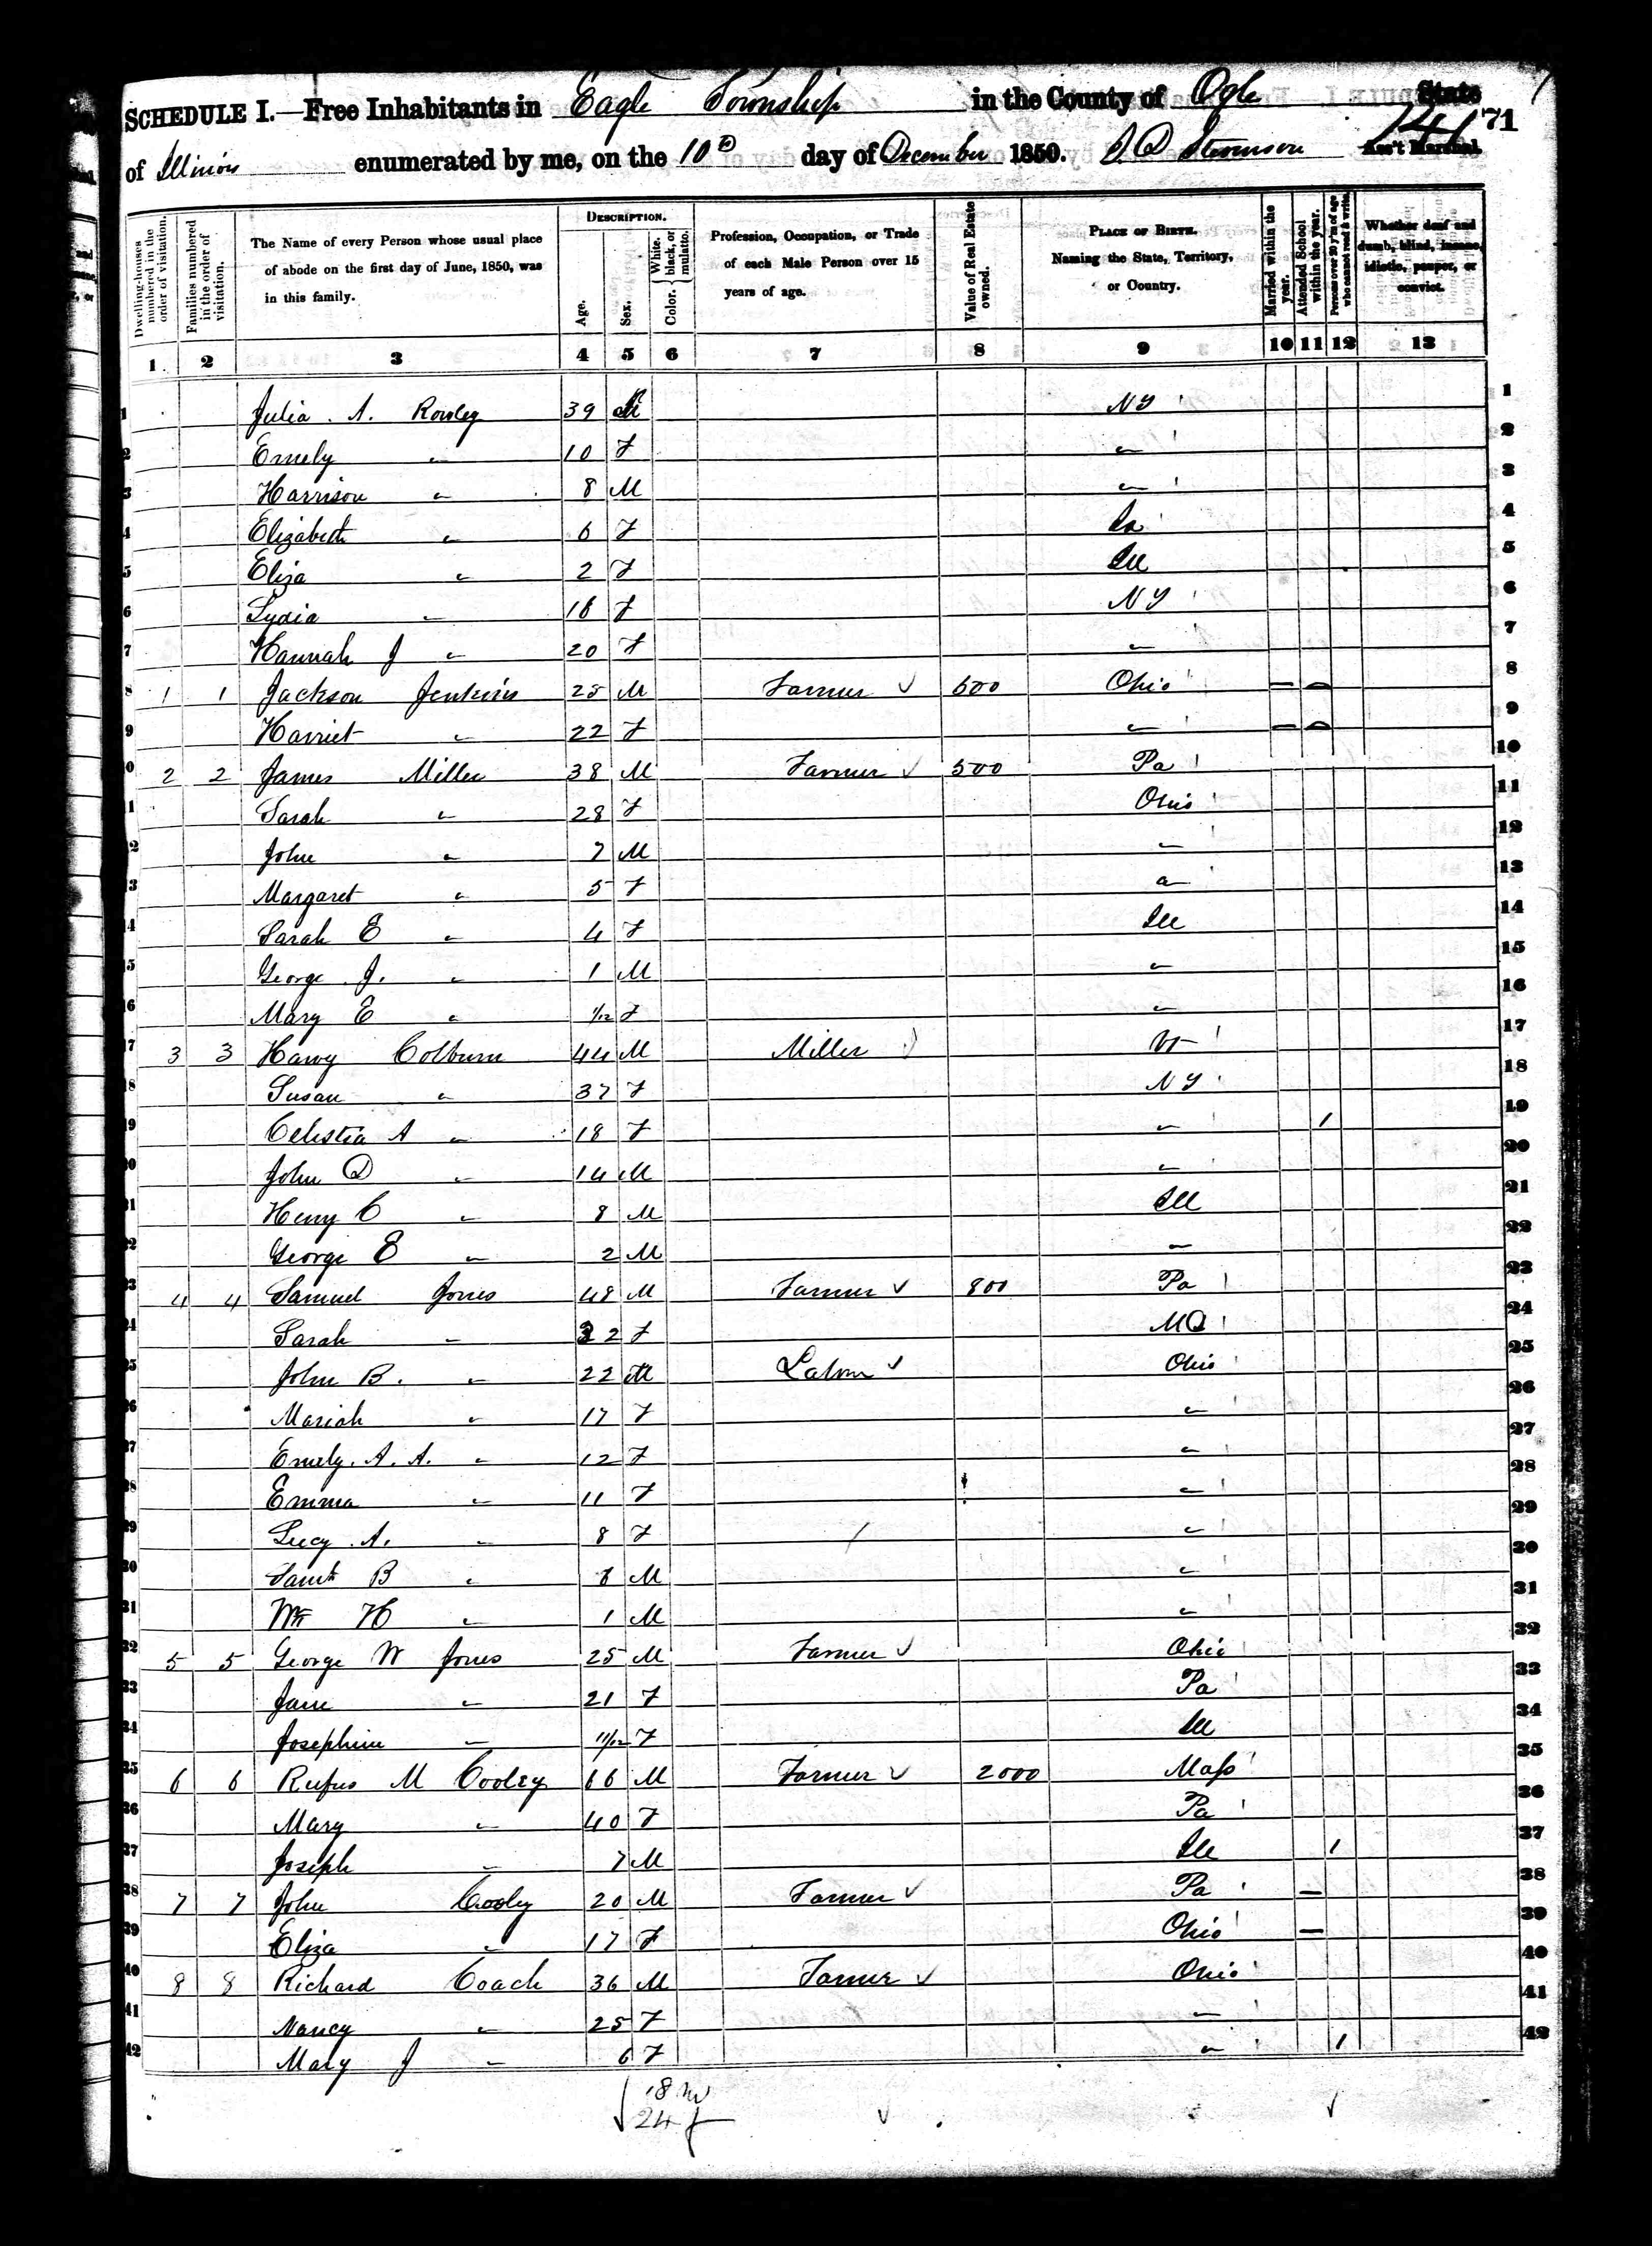 SCHEDULE I.—Free Inhabitants in Eagle Township in the County of Ogle State 71
of Illinois enumerated by me, on the 10th day of December 1850. Ass't Marshal.
Dwelling-houses numbered in the order of visitation.
Families numbered in the order of visitation.
The Name of every Person whose usual place of abode on the first day of June, 1850, was in this family.
DESCRIPTION.
Age.
Sex.
Color. { White, black, or mulatto.
Profession, Occupation, or Trade of each Male Person over 15 years of age.
Value of Real Estate owned.
PLACE OF BIRTH. Naming the State, Territory, or Country.
Married within the year.
Attended School within the year.
Persons over 20 y'rs of age who cannot read & write.
Whether deaf and dumb, blind, insane, idiotic, pauper, or convict.
1 2 3 4 5 6 7 8 9 10 11 12 13
1 Julia A. Rowley 39 NY 1
2 Emely " 10 F " 2
3 Harrison " 8 M " 3
4 Elizabeth " 6 F 4
5 Eliza " 2 F Ill 5
6 Lydia " 16 F NY 6
7 Hannah J " 20 F " 7
8 1 1 Jackson Jenkins 25 M Farmer 500 Ohio 8
9 Harriet " 22 F " 9
10 2 2 James Miller 38 M Farmer 500 Pa 10
11 Sarah " 28 F Ohio 11
12 John " 7 M " 12
13 Margaret " 5 F " 13
14 Sarah E " 4 F Ill 14
15 George J. " 1 M " 15
16 Mary E " 1/12 F " 16
17 3 3 Harvy Colburn 44 M Miller Vt 17
18 Susan " 37 F NY 18
19 Celestia A " 18 F " 1 19
20 John D " 14 M " 20
21 Henry C " 8 M Ill 21
22 George E " 2 M " 22
23 4 4 Samuel Jones 48 M Farmer 800 Pa 23
24 Sarah " F MD 24
25 John B. " 22 M Labour Ohio 25
26 Mariah " 17 F " 26
27 Emely. A. A. " 12 F " 27
28 Emma " 11 F " 28
29 Lucy A. " 8 F " 29
30 B " M " 30
31 Wm H " 1 M " 31
32 5 5 George W Jones 25 M Farmer Ohio 32
33 Jane " 21 F Pa 33
34 Josephine " 11/12 F Ill 34
35 6 6 Rufus M Cooley 66 M Farmer 2000 Mass 35
36 Mary " 40 F Pa 36
37 Joseph " 7 M Ill 1 37
38 7 7 John Cooley 20 M Farmer Pa 38
39 Eliza " 17 F Ohio 39
40 8 8 Richard Coach 36 M Farmer Ohio 40
41 Nancy " 25 F " 41
42 Mary J " 6 F " 1 42
18 m
24 f